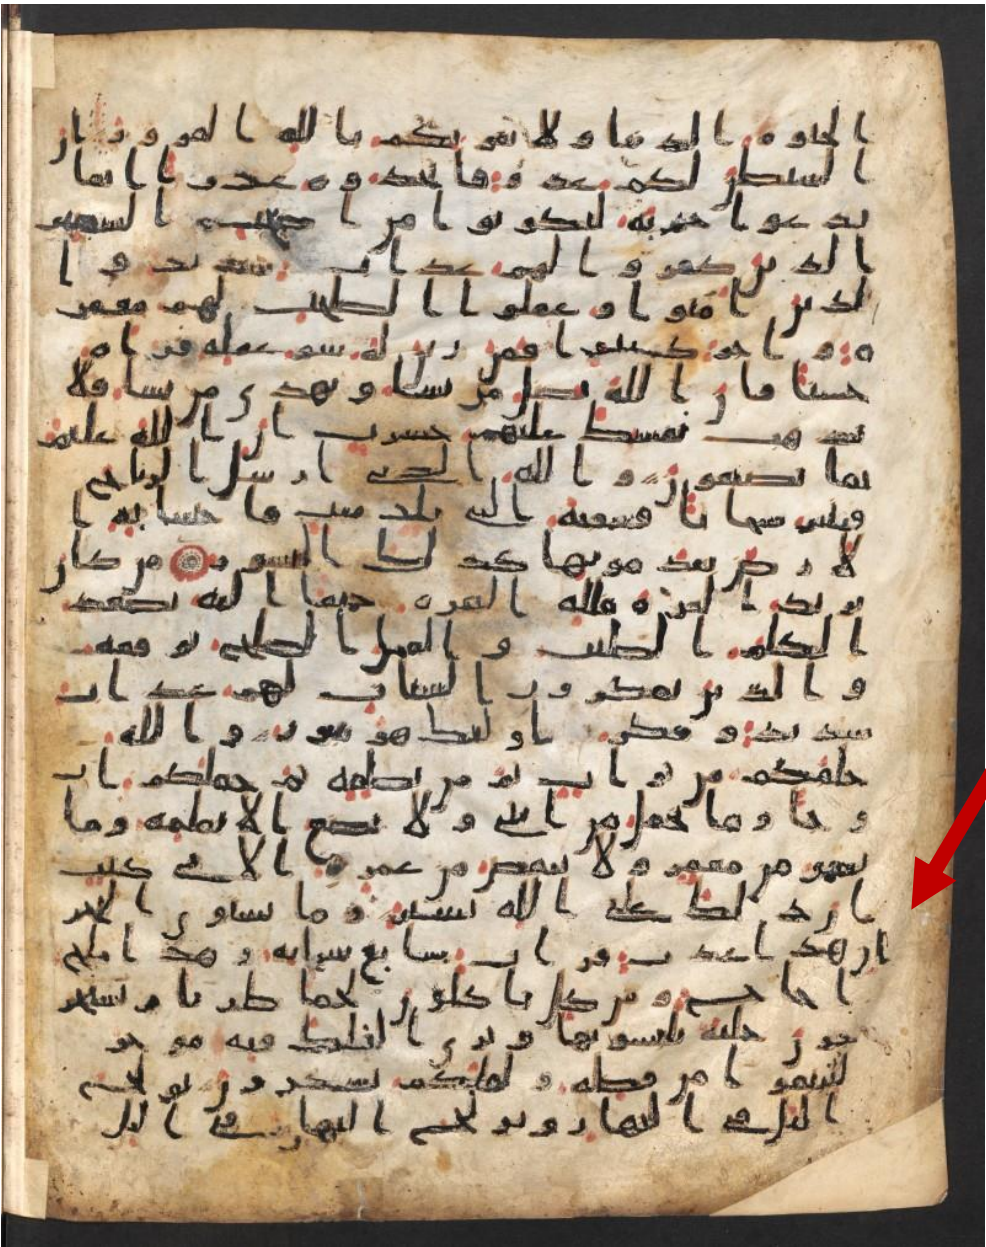 الحيوة الدنيا ولا يغرنكم بالله الغرور ان
الشيطن لكم عدو فاتخذوه عدوا انما
يدعوا حزبه ليكونوا من اصحب السعير
الذين كفروا لهم عذاب شديد وا
لذين امنوا وعملوا الصلحت لهم مغفر
ة واجر كبير افمن زين له سو عمله فراه
حسنا فان الله يضل من يشا ويهدي من يشا فلا
تذهب نفسك عليهم حسرت ان الله عليم
بما يصنعون والله الذي ارسل الريح
فتثير سحابا فسقنه الى بلد ميت فاحيينا به ا
لارض بعد موتها كذلك النشور من كان
يريد العزة فلله العزة جميعا اليه يصعد
الكلم الطيب والعمل الصلح يرفعه
والذين يمكرون السيات لهم عذاب
شديد ومكر اولئك هو يبور والله
خلقكم من تراب ثم من نطفة ثم جعلكم از
وجا وما تحمل من انثى ولا تضع الا بعلمه وما
يعمر من معمر ولا ينقص من عمره الا في كتب
ان ذلك على الله يسير وما يستوي البحر
ان هذا عذب فرات سايغ شرابه وهذا ملح
اجاج ومن كل تاكلون لحما طريا وتستخر
جون حلية تلبسونها وترى الفلك فيه موخر
لتبتغوا من فضله ولعلكم تشكرون يولج
اليل في النهار ويولج النهار في اليل